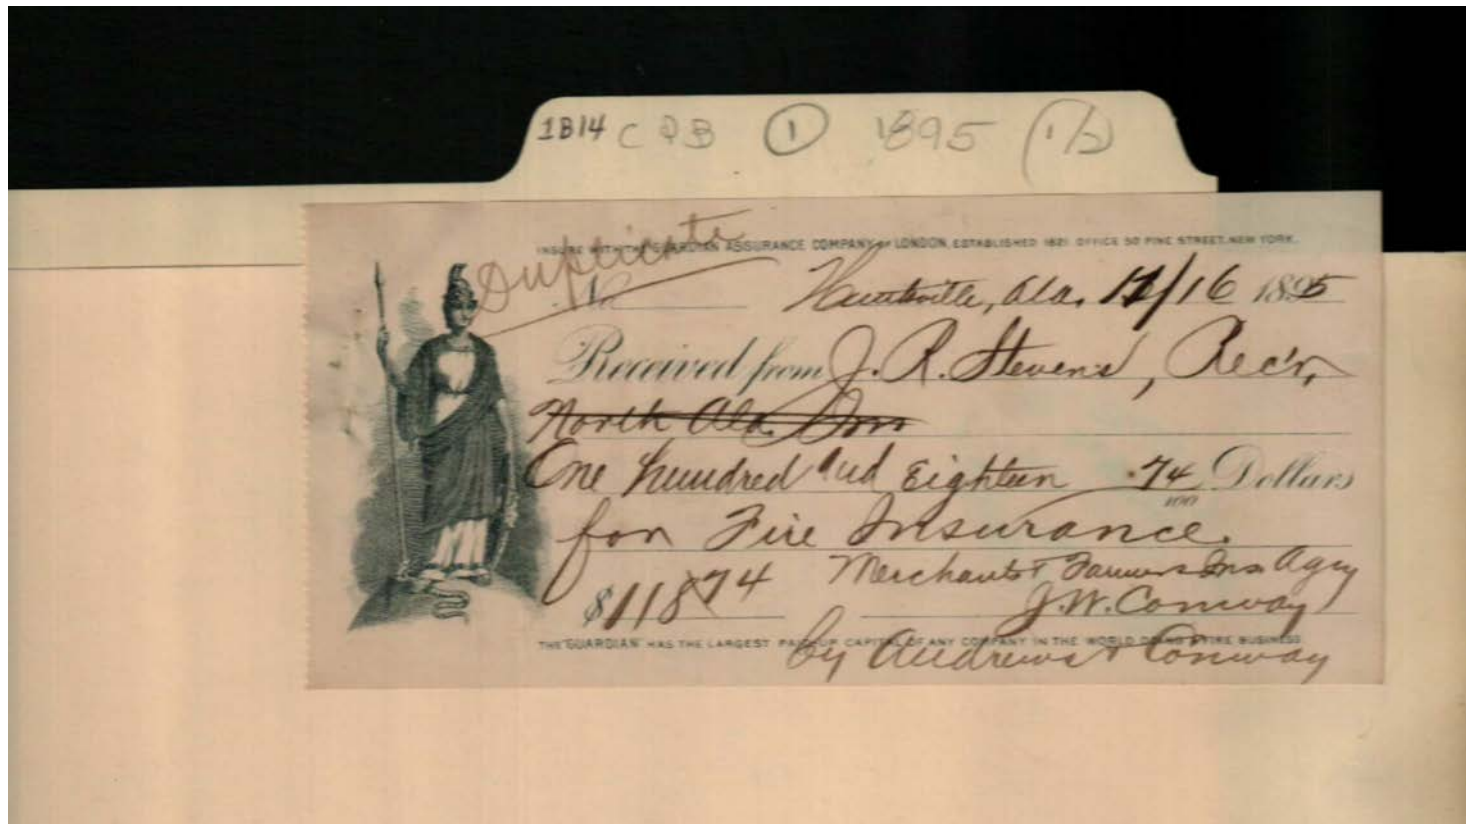 1B14 C 2B ① 1895 (1/2)
INSURE WITH THE GUARDIAN ASSURANCE COMPANY OF LONDON, ESTABLISHED 1821. OFFICE 50 PINE STREET, NEW YORK.
Duplicate
No Huntsville, Ala. 12/16 1895
Received from J. R. Stevens, Rec'r,
North Ala.
One hundred and Eighteen 74/100 Dollars
for Fire Insurance.
$118 74 Merchants & Farmers Ins Agcy
J. W. Conway
THE "GUARDIAN" HAS THE LARGEST PAID-UP CAPITAL OF ANY COMPANY IN THE WORLD DOING A FIRE BUSINESS.
by Andrews & Conway